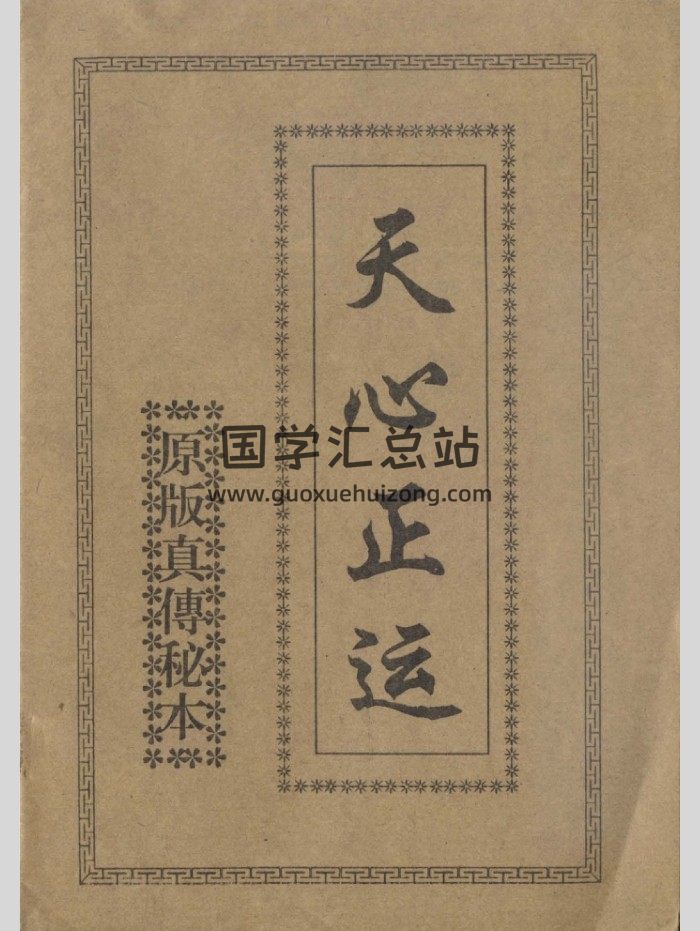 天心正运
原版真傳秘本
国学汇总站
www.guoxuehuizong.com